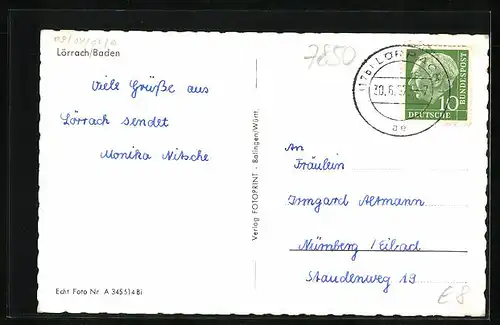 7850
Lörrach/Baden
(17b) LÖRRACH
30.6.57
ae
10
DEUTSCHE
BUNDESPOST
Viele Grüße aus
Lörrach sendet
Monika Nitsche
Verlag FOTOPRINT - Balingen/Württ.
An
Fräulein
Irmgard Altmann
Nürnberg/Eibad
Staudenweg 19
Echt Foto Nr. A 345 514 Bi
E8